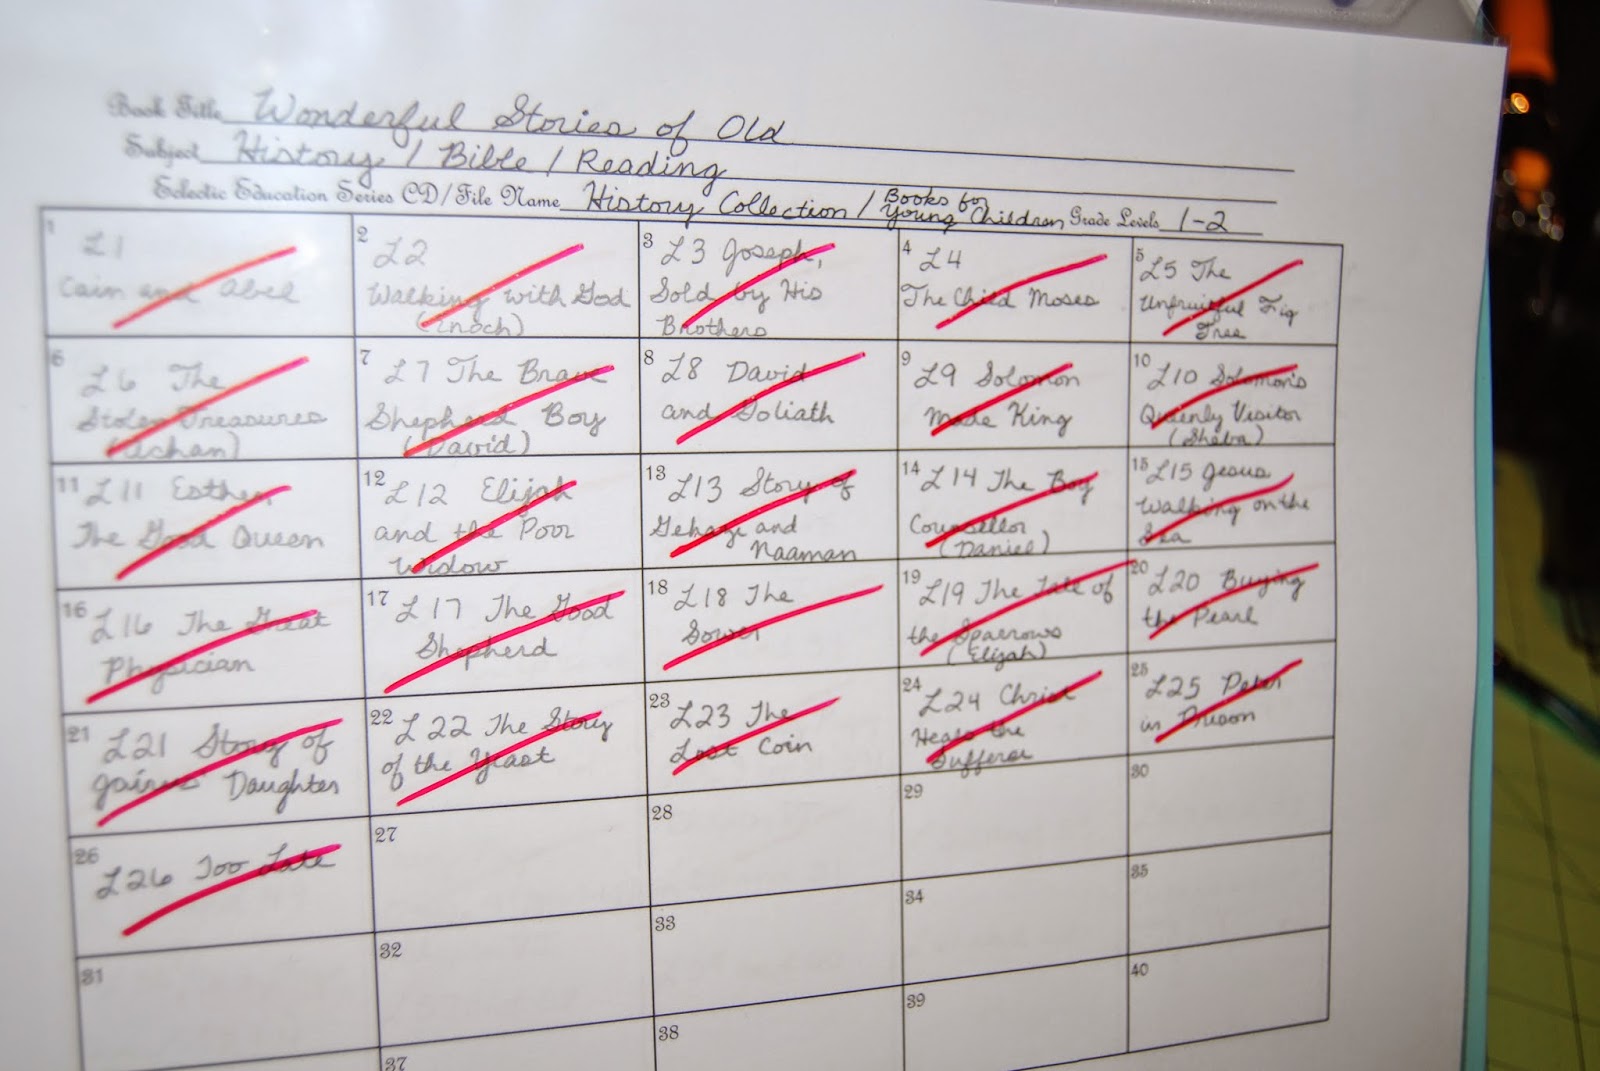 Book Title Wonderful Stories of Old
Subject History / Bible / Reading
Eclectic Education Series CD/File Name History Collection / Books for Young Children Grade Levels 1-2
1
L1
Cain and Abel
2
L2
Walking with God
(Enoch)
3 L3 Joseph,
Sold by His
Brothers
4 L4
The Child Moses
5
L5 The
Unfruitful Fig
Tree
6
L6 The
Stolen Treasures
(Achan)
7 L7 The Brave
Shepherd Boy
(David)
8 L8 David
and Goliath
9 L9 Solomon
Made King
10 L10 Solomon's
Queenly Visitor
(Sheba)
11 L11 Esther,
The Good Queen
12 L12 Elijah
and the Poor
Widow
13 L13 Story of
Gehazi and
Naaman
14 L14 The Boy
Counsellor
(Daniel)
15 L15 Jesus
Walking on the
Sea
16 L16 The Great
Physician
17 L17 The Good
Shepherd
18 L18 The
Sower
19 L19 The Tale of
the Sparrows
(Elijah)
20 L20 Buying
the Pearl
21 L21 Story of
Jairus' Daughter
22 L22 The Story
of the Yeast
23 L23 The
Lost Coin
24 L24 Christ
Heals the
Sufferer
25 L25 Peter
in Prison
26
L26 Too Late
27
28
29
30
31
32
33
34
35
37
38
39
40